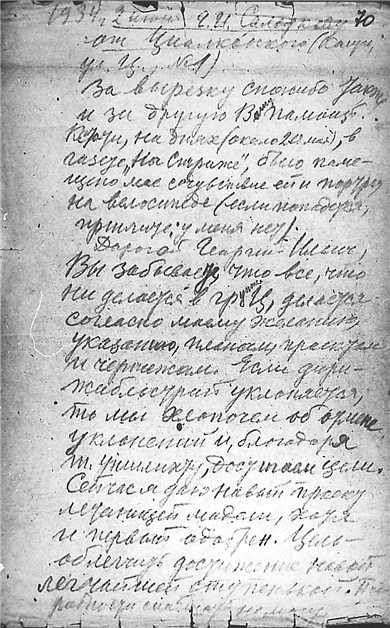 1934, 2 июня Г.И. Солодкову 70
от Циалковского (Калуга,
ул. Ц. №1)
За вырезку спасибо
и за другую Вашу помощь.
Кстати, на днях (около 20 мая), в
газете "На страже", было поме-
щено мое сочувствие ей и портрет
на велосипеде (если попадется,
пришлите; у меня нет).
Дорогой Георгий
Вы забываете, что все, что
ни делается в группе Ц, делается
согласно моему желанию,
указанию, планам, проектам
и чертежам. Если дири-
жаблестрой уклоняется,
то мы хлопочем об отмене
уклонений и, благодаря
достигаем цели.
Сейчас я даю новый проект
летающей модели, хотя
и первый одобрен. Цель –
облегчить достижение новой
легчайшей ступенькой.